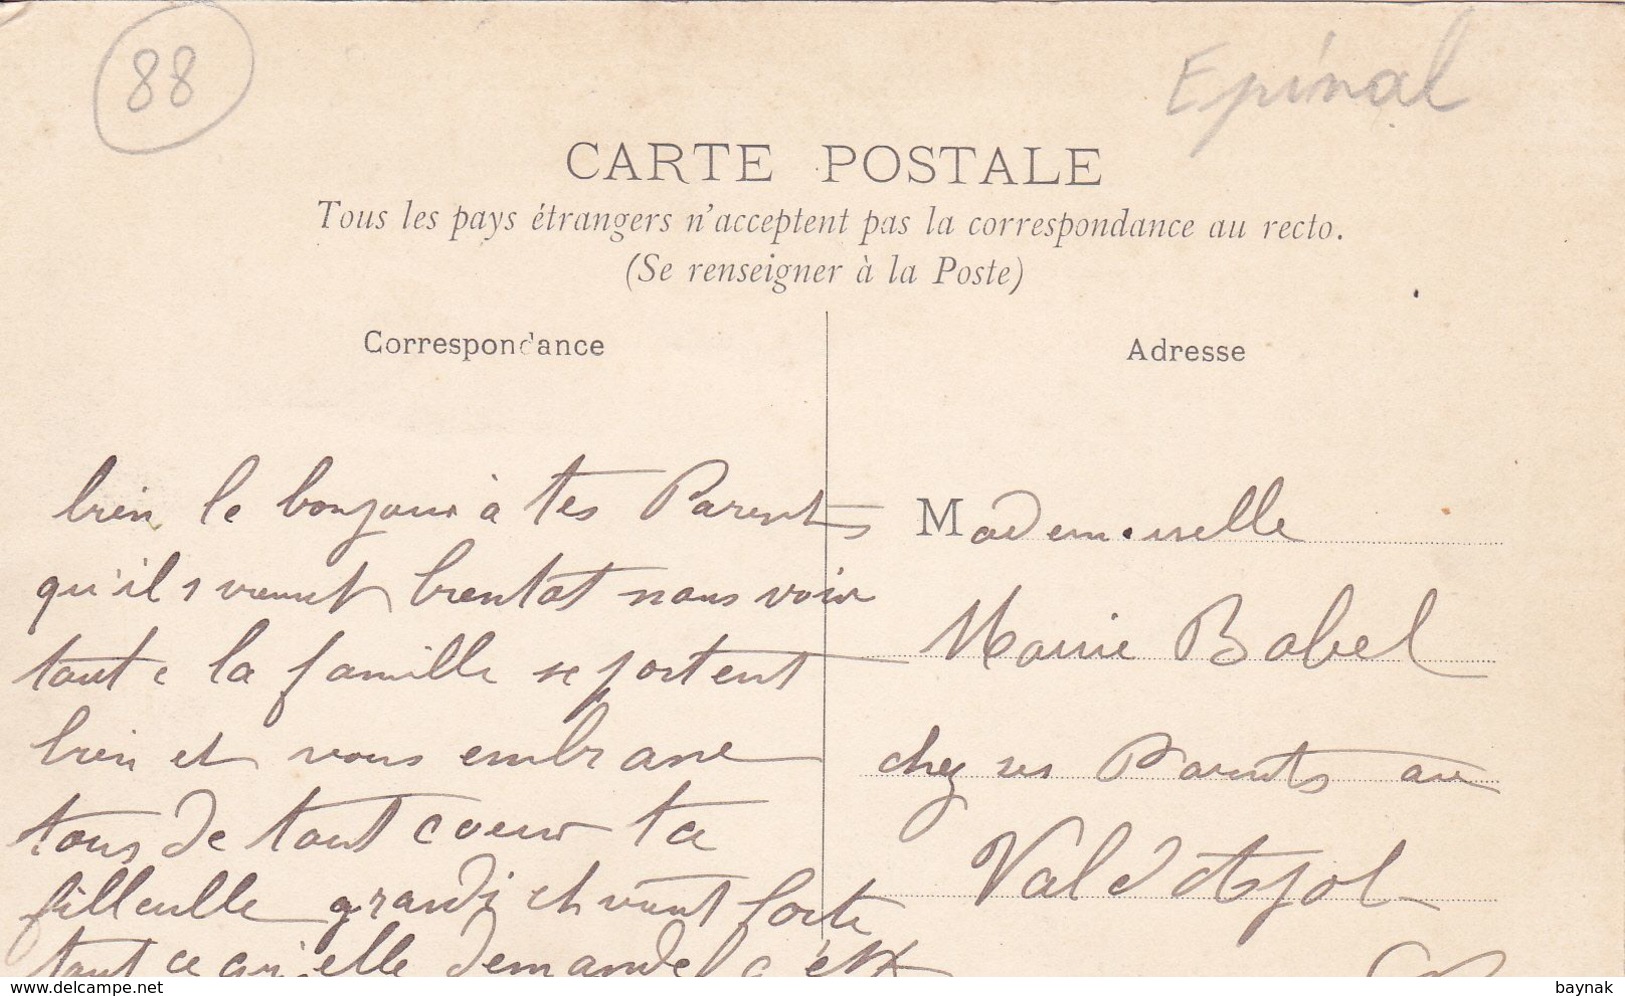 88
Epinal
CARTE POSTALE
Tous les pays étrangers n'acceptent pas la correspondance au recto.
(Se renseigner à la Poste)
Correspondance
bien le bonjour à tes Parents
qu'ils vienent bientot nous voir
toute la famille se portent
bien et vous embrasse
tous de tout coeur ta
filleulle grandi et vient forte
tout ce qu'elle demande c'est
Adresse
Mademoiselle
Marie Babel
chez ses Parents au
Val d'Atsjol
delcampe.net
baynak